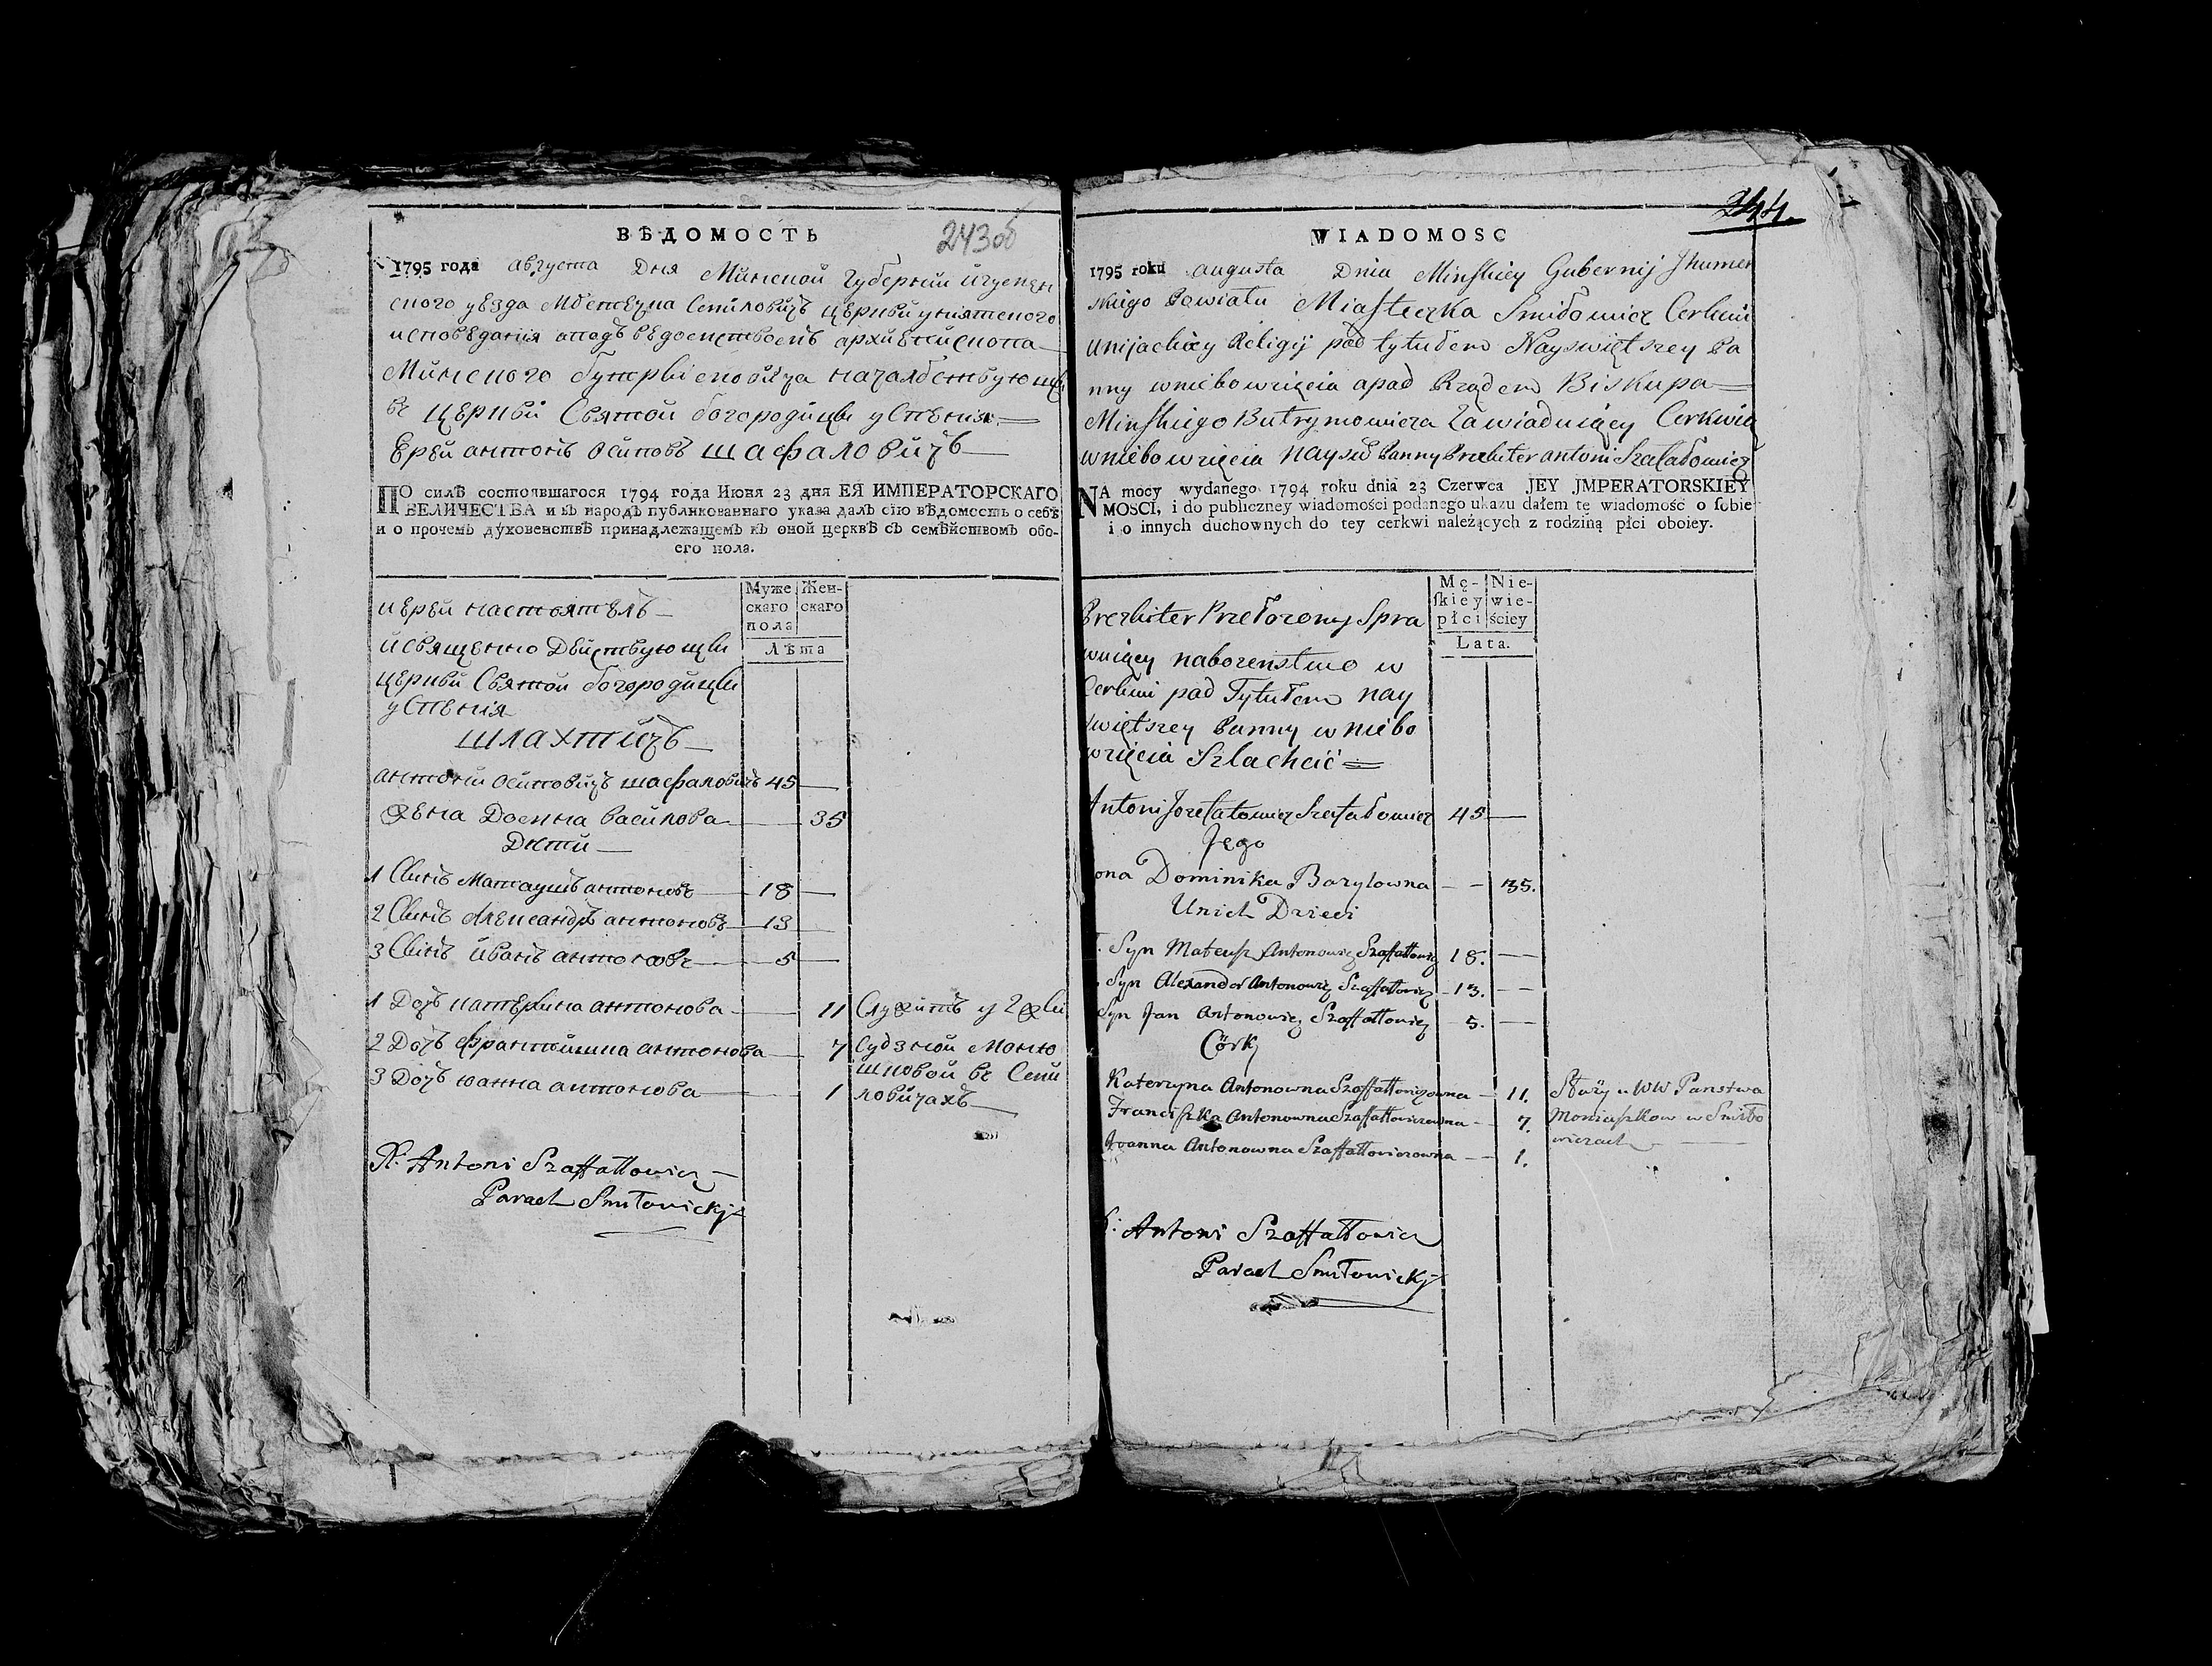 ВѢДОМОСТЬ
243об
1795 года августа Дня Минской Губернии Игумен
ского уезда Местечка Смиловичъ церкви униятского
исповедания аподъ ведомством архиепископа
Минского Бутрвімовича началствующы
въ церкви Святой богородицы успения
Ерей антонъ Осиповъ шафаловичъ
ПО силѣ состоявшагося 1794 года Июня 23 дня ЕЯ ИМПЕРАТОРСКАГО
ВЕЛИЧЕСТВА и въ народъ публикованнаго указа далъ сїю вѣдомость о себѣ
и о прочемъ духовенствѣ принадлежащемъ къ оной церквѣ съ семѣйствомъ обо-
его пола.
Муже
скаго
пола
Жен-
скаго
Лѣта
иерей настоятель
и священно Действующы
церкви Святой богородицы
успения
шлахтичъ
антоній Осиповичъ шафаловичъ 45
жена Домина василова 35
Дети
1 Сынъ Матаушъ антоновъ 18
2 Сынъ Александръ антоновъ 13
3 Сынъ иванъ антоновъ 5
1 Дочъ катерина антонова 11 Служитъ у Гжы
2 Дочъ франтишка антонова 7 Судзкой Моню
3 Дочъ юанна антонова 1 шковой въ Сми
ловичахъ
X. Antoni Szaffałłowicz
Paroch Smiłowicki
WIADOMOSC
244.
1795 roku augusta Dnia Minskiey Gubernij Jhumen
skiego Powiatu Miasteczka Smiłowicz Cerkwi
Unijackiey Religij pod tytułem Nayswiętszey Pa
nny wniebowzięcia apod Rządem Biskupa
Minskiego Butrymowicza Zawiaduiący Cerkwią
wniebowzięcia nayśw Panny Prezbiter antoni Szafałowicz
NA mocy wydanego 1794 roku dnia 23 Czerwca JEY JMPERATORSKIEY
MOSCI, i do publiczney wiadomości podanego ukazu dałem tę wiadomość o sobie
i o innych duchownych do tey cerkwi należących z rodziną płci oboiey.
Mę-
skiey
płci
Nie-
wie-
ściey
Lata.
Prezbiter Przełożony Spra
wuiący naborenstwo w
Cerkwi pod Tytułem nay
swiętszey Panny wniebo
wzięcia Szlachcic
Antoni Jozefatowicz Szafałowicz 45
Jego
ona Dominika Bazylowna 35.
Unich Dzieci
Syn Mateusz Antonowicz Szaffałłowicz 18.
Syn Alexander Antonowicz Szaffałłowicz 13.
Syn Jan Antonowicz Szaffałłowicz 5.
Córk
Kateryna Antonowna Szaffałłowiczowna 11. Służy u WW Panstwa
Franciszka Antonowna Szaffałłowiczowna 7. Moniuszkow w Smiło
Joanna Antonowna Szaffałłowiczowna 1. wiczach
X: Antoni Szaffałłowicz
Paroch Smiłowicki